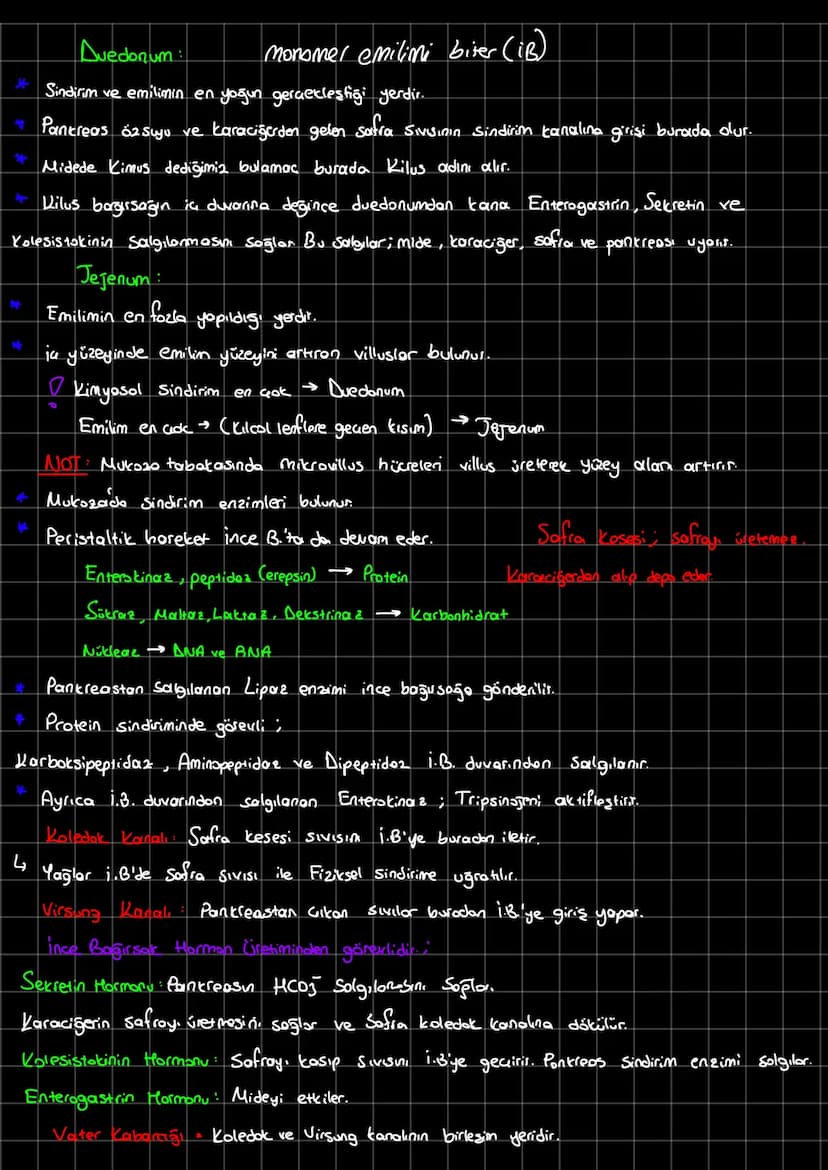 Duedonum : monomer emilimi biter (iB)
* Sindirim ve emilimin en yoğun gerçekleştiği yerdir.
* Pankreas özsuyu ve karaciğerden gelen safra sıvısının sindirim kanalına girişi burada olur.
* Midede Kimus dediğimiz bulamaç burada Kilus adını alır.
* Kilus bağırsağın iç duvarına değince duedonumdan kana Enterogastrin, Sekretin ve
Kolesistokinin salgılanmasını sağlar Bu salgılar; mide, karaciğer, safra ve pankreası uyarır.
Jejenum :
* Emilimin en fazla yapıldığı yerdir.
* iç yüzeyinde emilim yüzeyini artıran villuslar bulunur.
! Kimyasal Sindirim en çok → Duedonum
Emilim en çok → (Kılcal lenflere geçen kısım) → Jejenum
NOT : Mukoza tabakasında mikrovillus hücreleri villus üreterek yüzey alanı artırır.
* Mukozada sindirim enzimleri bulunur.
* Peristaltik hareket ince B.'ta da devam eder.
Safra kesesi; safrayı üretemez.
Karaciğerden alıp depo eder
Enterokinaz, peptidaz (erepsin) → Protein
Sükraz, Maltaz, Laktaz, Dekstrinaz → Karbonhidrat
Nükleaz → DNA ve RNA
* Pankreastan salgılanan Lipaz enzimi ince bağırsağa gönderilir.
* Protein sindiriminde görevli ;
Karboksipeptidaz, Aminopeptidaz ve Dipeptidaz i.B. duvarından salgılanır.
* Ayrıca i.B. duvarından salgılanan Enterokinaz ; Tripsinojeni aktifleştirir.
Koledok Kanalı : Safra kesesi sıvısını i.B'ye buradan iletir.
↳ Yağlar i.B'de safra sıvısı ile Fiziksel sindirime uğratılır.
Virsung Kanalı : Pankreastan çıkan sıvılar buradan i.B.'ye giriş yapar.
İnce Bağırsak Hormon Üretiminden görevlidir. ;
Sekretin Hormonu : Pankreasın HCO3 salgılamasını sağlar.
Karaciğerin safrayı üretmesini sağlar ve safra koledok kanalına dökülür.
Kolesistokinin Hormonu : Safrayı kasıp sıvısını i.B'ye geçirir. Pankreas sindirim enzimi salgılar.
Enterogastrin Hormonu : Mideyi etkiler.
Vater Kabarcığı = Koledok ve Virsung kanalının birleşim yeridir.